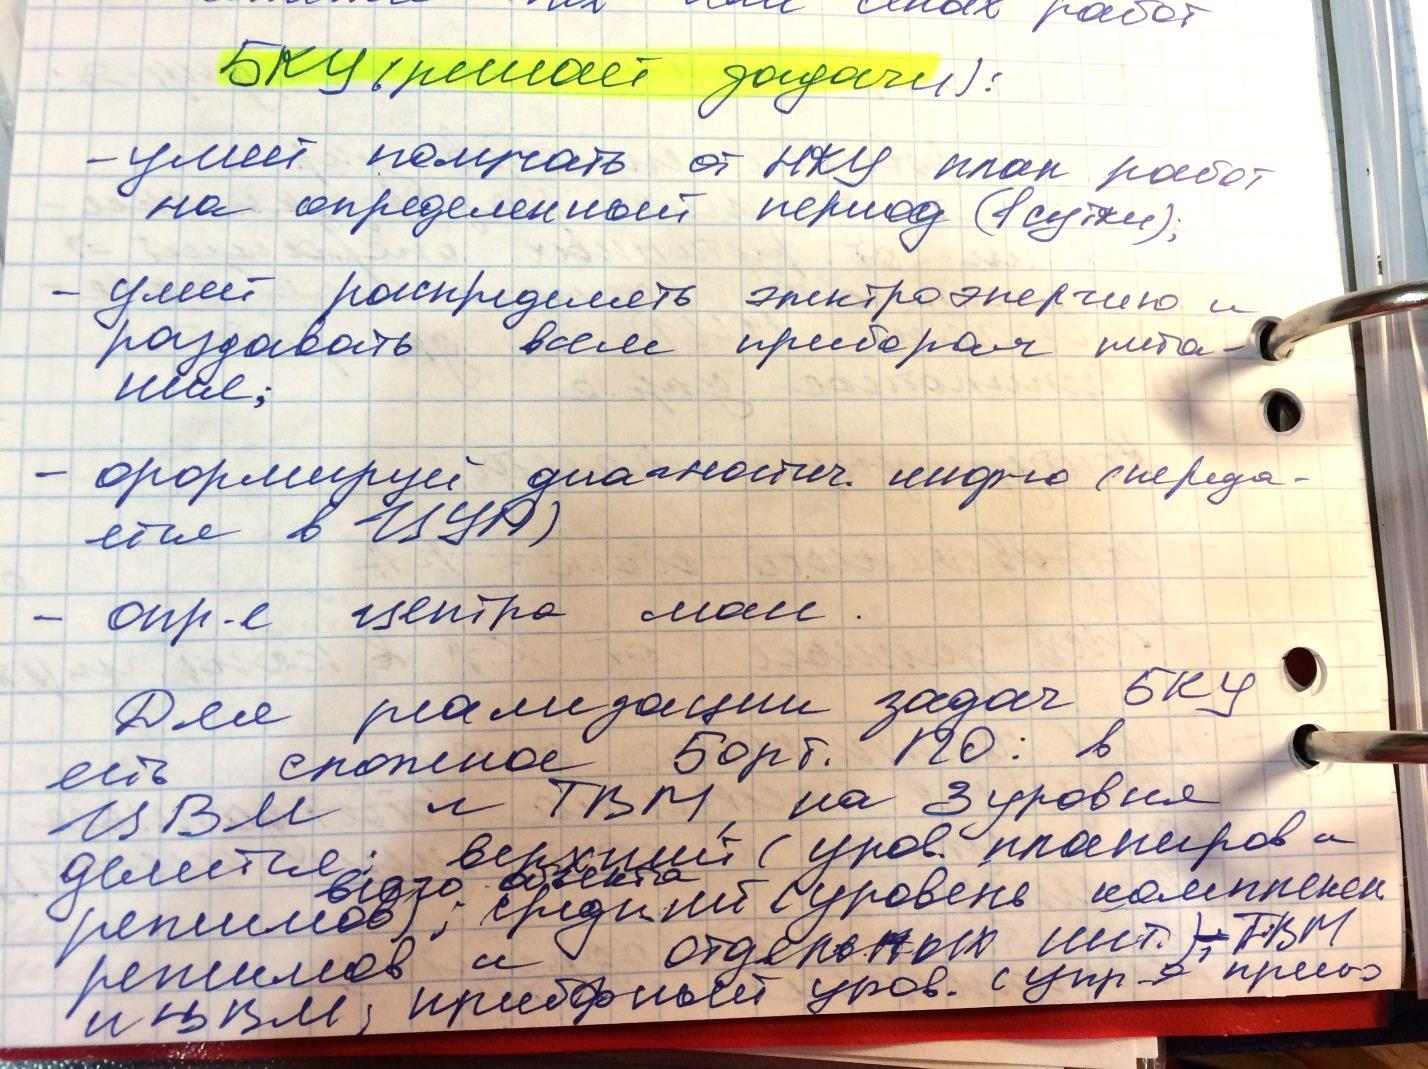 них работ
БКУ (решает задачи):
- умеет получать от НКУ план работ
на определенный период (1 сутки);
- умеет распределять электроэнергию и
раздавать всем приборам пита-
ние;
- формирует диагностич. инф-ю (переда-
ется в ЦУП)
- опр-е центра масс.
Для реализации задач БКУ
есть сложное борт. ПО: в
ЦВМ и ТВМ, на 3 уровня
делится: верхний (уров. планиров и
всего объекта
режимов); средний (уровень комплексн
режимов и отдельных инт.) - ТВМ
и ЦВМ; приборный уров. (упр-е